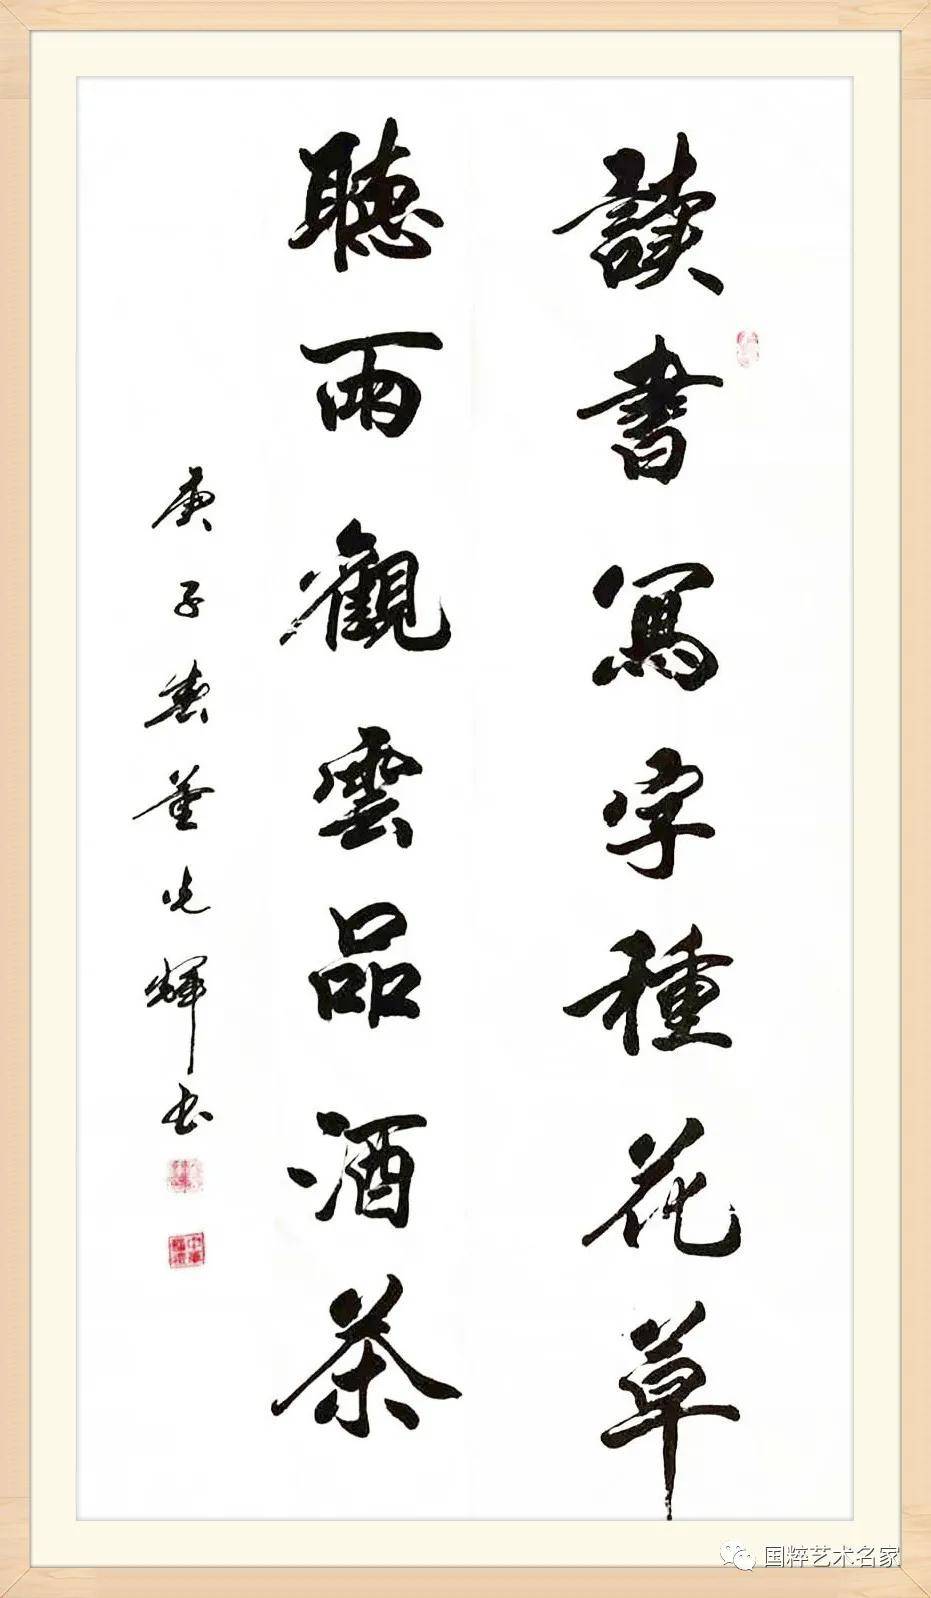 讀書寫字種花草
聽雨觀雲品酒茶
庚子春董先輝书
国粹艺术名家